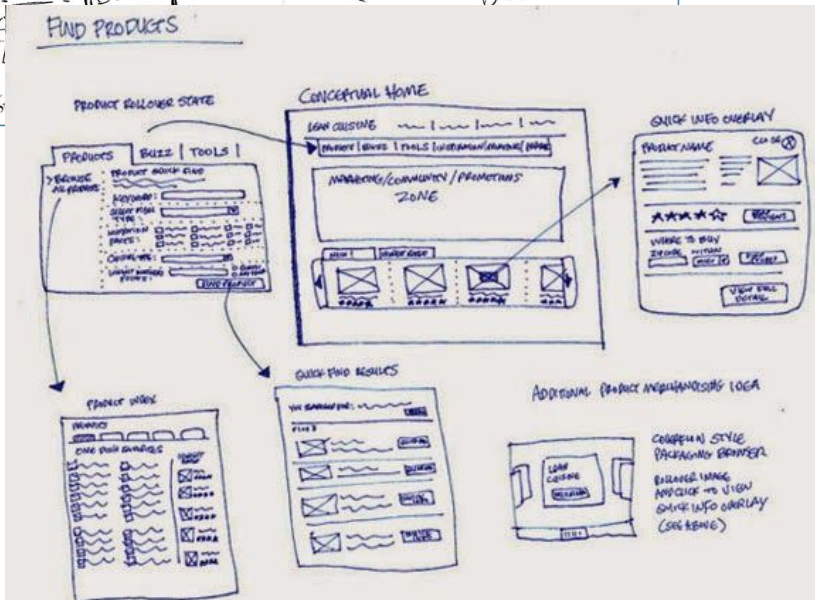 FIND PRODUCTS
PRODUCT ROLLOVER STATE
PRODUCTS BUZZ | TOOLS |
> BROWSE
ALL PRODUCTS
PRODUCT QUICK FIND
KEYWORD:
SELECT MEAL
TYPE
NUTRITION
FACTS:
FIND PRODUCT
CONCEPTUAL HOME
LEAN CUISINE
BUZZ | TOOLS |
MARKETING/COMMUNITY/PROMOTIONS
ZONE
NEW!
QUICK INFO OVERLAY
PRODUCT NAME
CLOSE X
WHERE TO BUY
ZIPCODE WITHIN
VIEW FULL
DETAIL
PRODUCT INDEX
PRODUCTS
ONE DISH FAVORITES
QUICK FIND RESULTS
YOU SEARCHED FOR:
ADDITIONAL PRODUCT MERCHANDISING IDEA
LEAN
CUISINE
COVERFLOW STYLE
PACKAGING BROWSER
ROLLOVER IMAGE
AND CLICK TO VIEW
QUICK INFO OVERLAY
(SEE ABOVE)